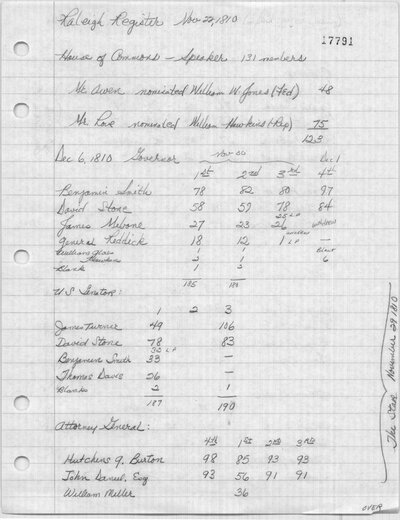 Raleigh Register Nov 22, 1810
17791
House of Commons - Speaker 131 members
Mr. Owen nominated William W Jones (Fed) 48
Mr. Love nominated William Hawkins (-Rep) 75
123
Dec 6, 1810 Governor Nov 30 Dec 1
1st 2nd 3rd 4th
Benjamin Smith 78 82 80 97
David Stone 58 59 78 84
James Mebane 27 23 26 withdrew
General Reddick 18 12 1 LP —
Hawkins 2 1 6
Blank 1 2
185 180
U.S. Senator:
1 2 3
James Turner 49 106
David Stone 78 83
Benjamin Smith 33 —
Thomas Davis 26 —
Blanks 2 1
187 190
Attorney General:
4th 1st 2nd 3rd
Hutchens G. Burton 98 85 93 93
John Daniel, Esq 93 56 91 91
William Miller 36
The Star November 29 1810
OVER